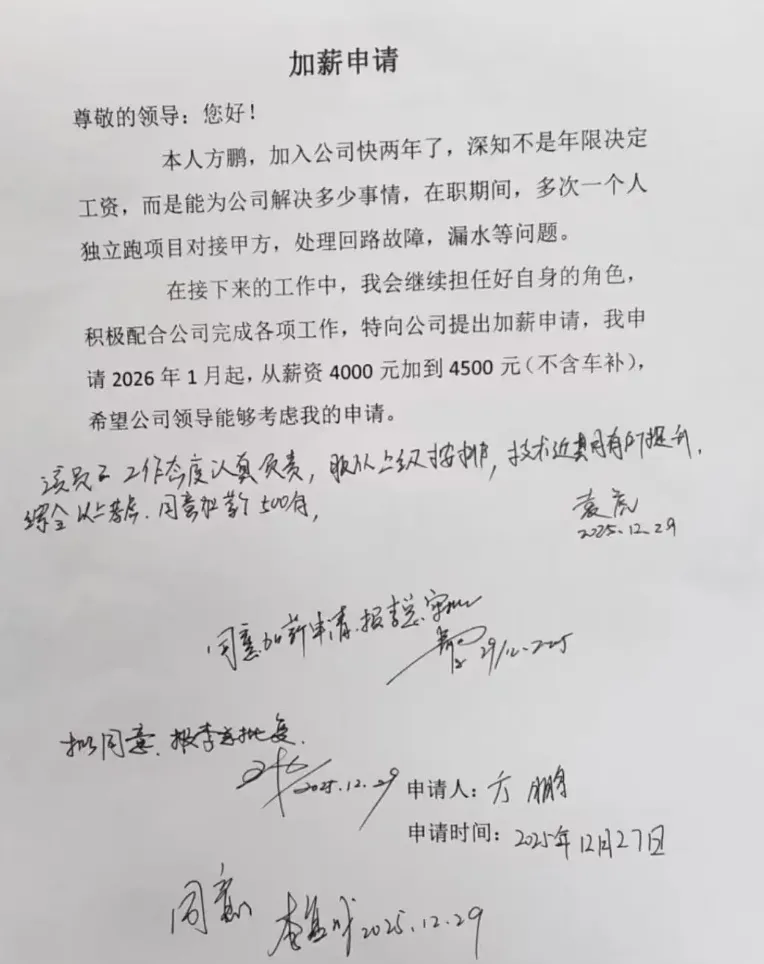 加薪申请
尊敬的领导：您好！
本人方鹏，加入公司快两年了，深知不是年限决定
工资，而是能为公司解决多少事情，在职期间，多次一个人
独立跑项目对接甲方，处理回路故障，漏水等问题。
在接下来的工作中，我会继续担任好自身的角色，
积极配合公司完成各项工作，特向公司提出加薪申请，我申
请 2026 年 1 月起，从薪资 4000 元加到 4500 元（不含车补），
希望公司领导能够考虑我的申请。
该员工工作态度认真负责，服从上级按排，技术近期有所提升，
综合以上考虑．同意加薪500每，
袁虎
2025.12.29
同意加薪申请．报李总审批
29/12-2025
拟同意、报李总批复．
2025.12.29
申请人：方鹏
申请时间：2025年12月27日
同意 李 2025.12.29